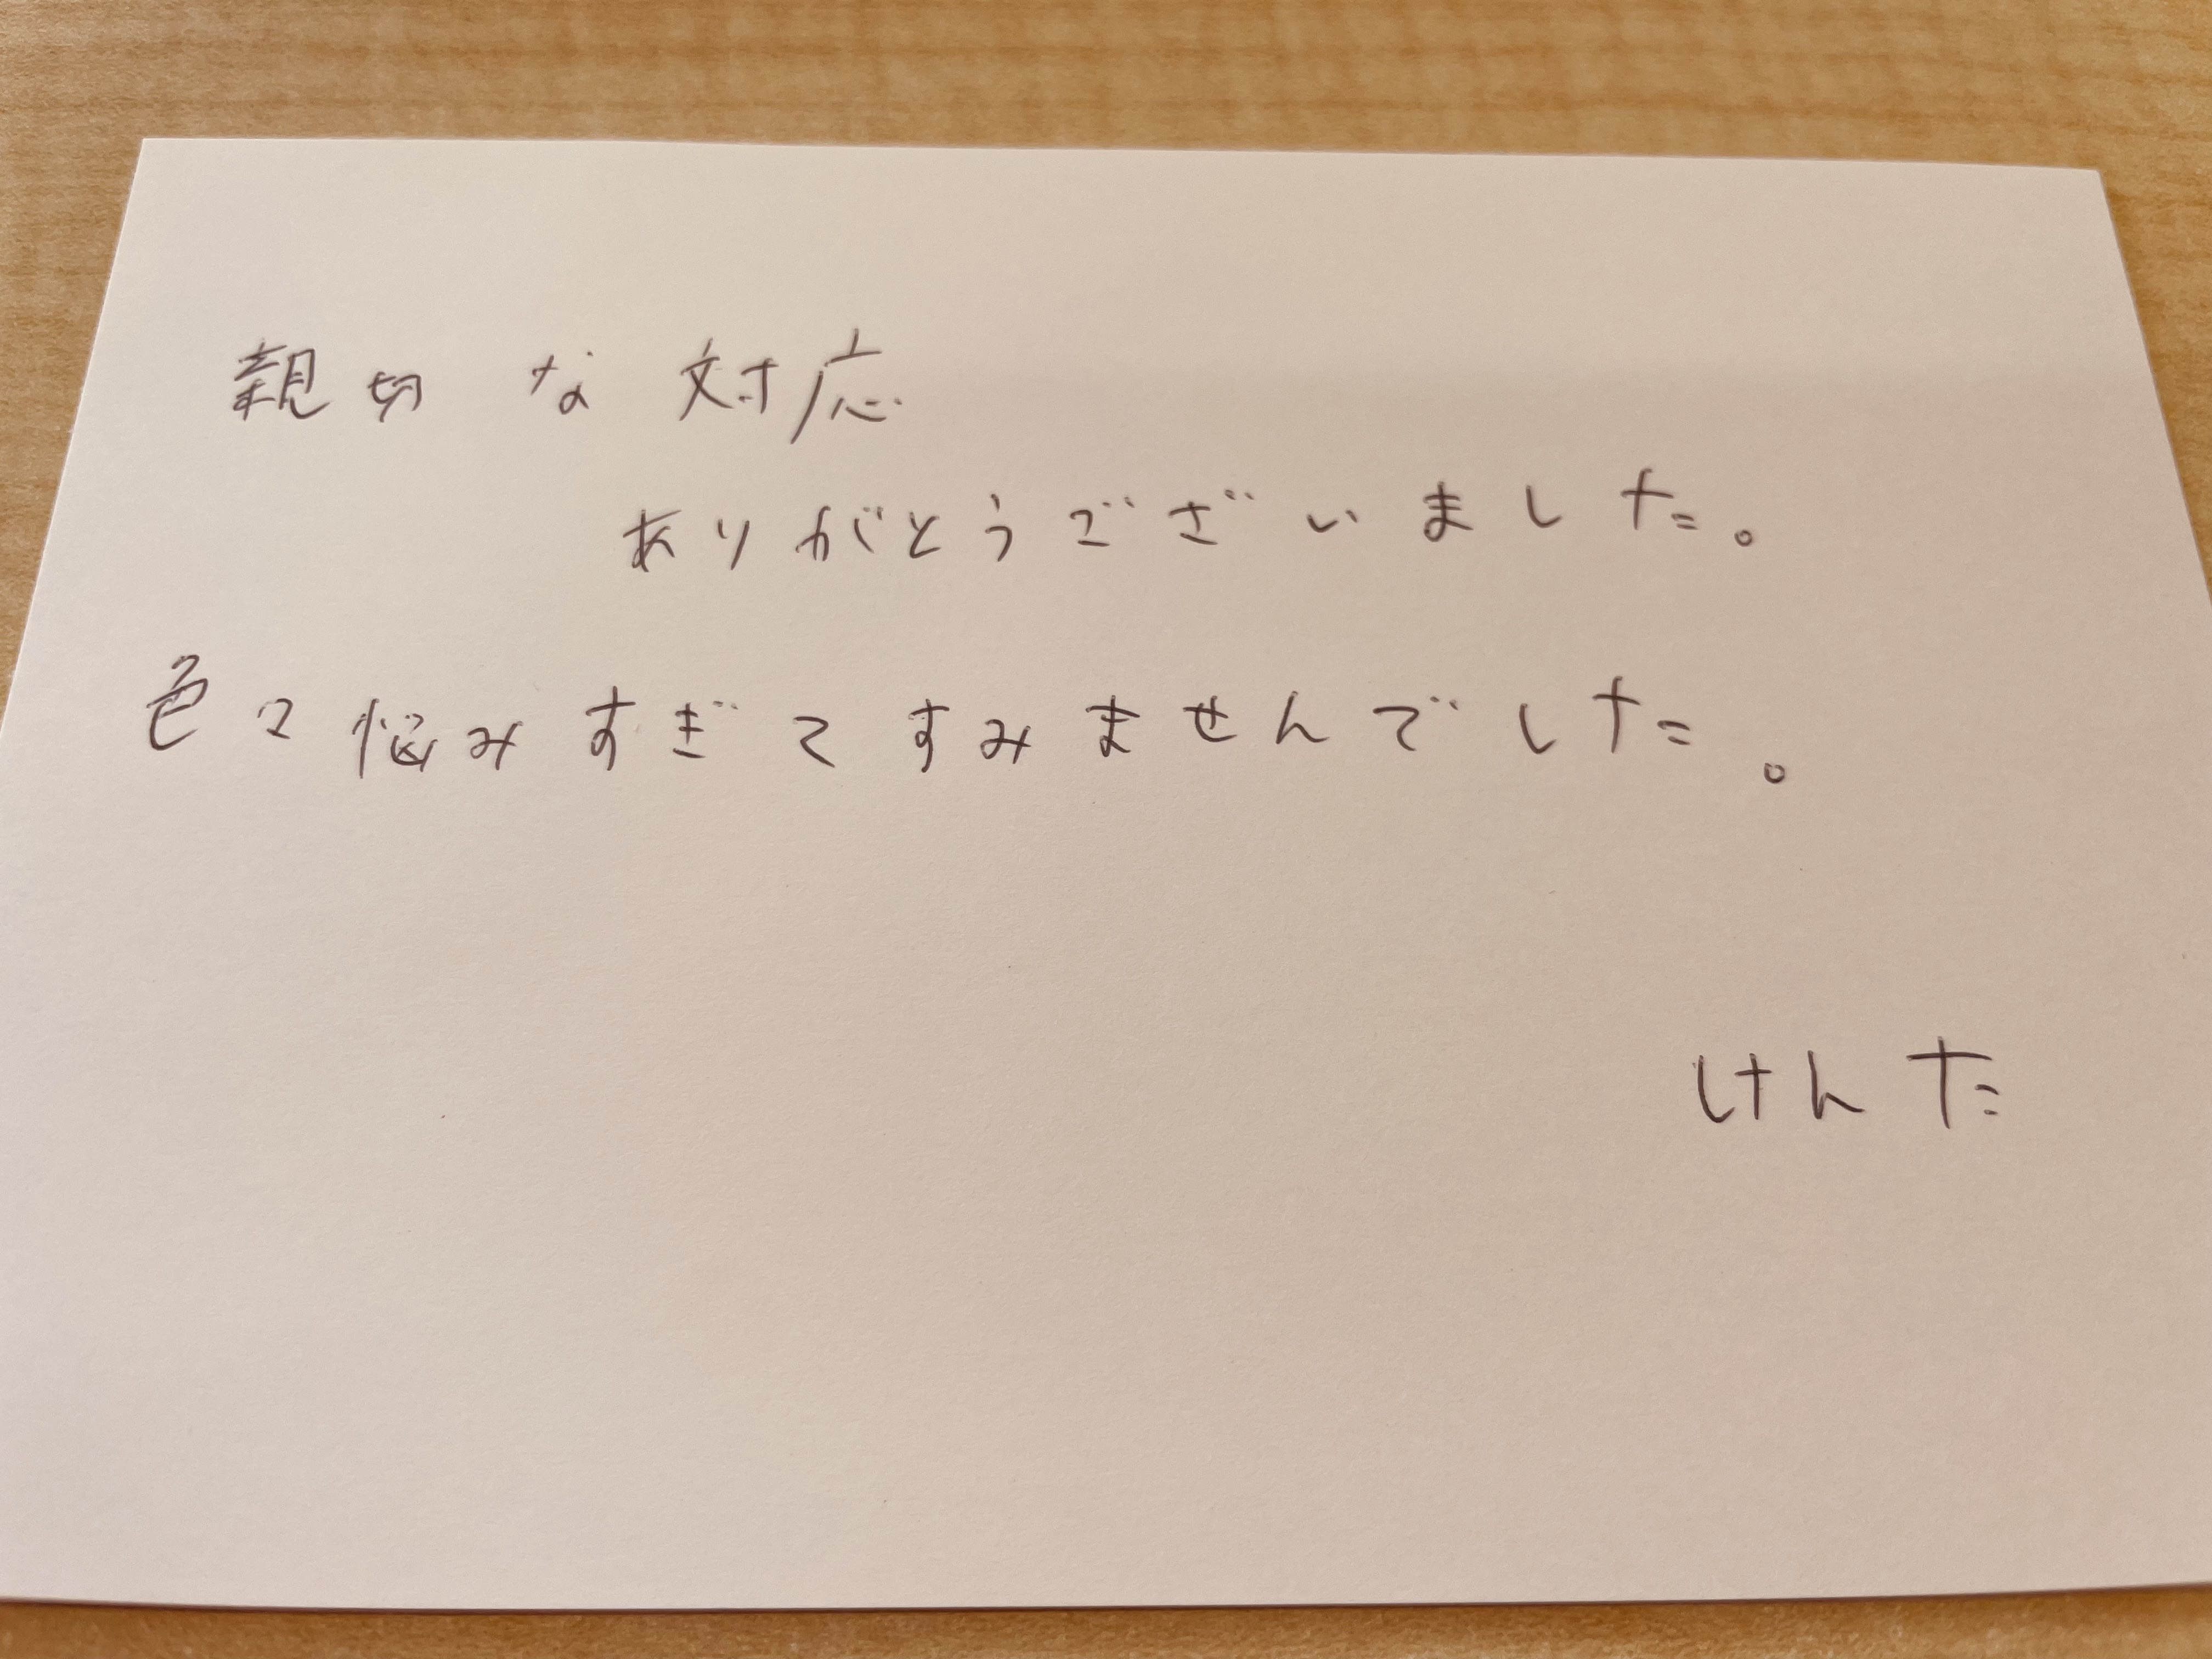 親切な対応
ありがとうございました。
色々悩みすぎてすみませんでした。
けんた